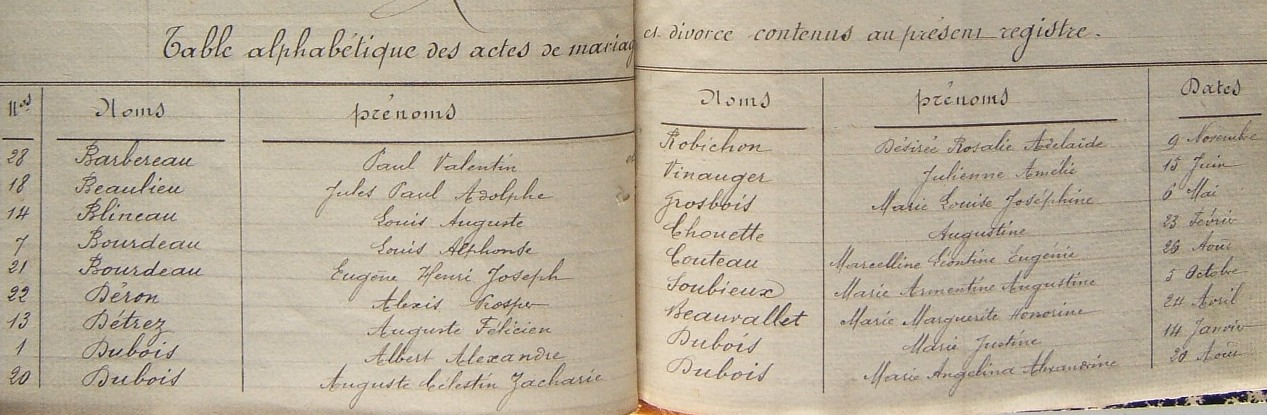 Table alphabétique des actes de mariage et divorce contenus au présent registre.
Nos Noms prénoms Noms prénoms Dates
28 Barbereau Paul Valentin et Robichon Désirée Rosalie Adelaïde 9 Novembre
18 Beaulieu Jules Paul Adolphe Vinauger Julienne Amélie 15 Juin
14 Blineau Louis Auguste Grosbois Marie Louise Joséphine 6 Mai
7 Bourdeau Louis Alphonse Chouette Augustine 23 Février
21 Bourdeau Eugène Henri Joseph Couteau Marcelline Léontine Eugénie 26 Août
22 Déron Alexis Prosper Soubieux Marie Armentine Augustine 5 Octobre
13 Détrez Auguste Félicien Beauvallet Marie Marguerite Honorine 24 Avril
1 Dubois Albert Alexandre Dubois Marie Justine 14 Janvier
20 Dubois Auguste Célestin Zacharie Dubois Marie Angelina Alexandrine 20 Août